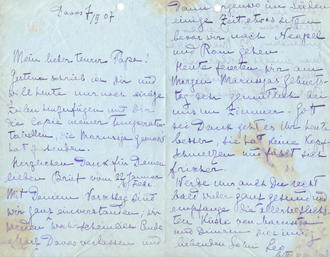 Davos 7/II 07
Mein lieber teurer Papa!
Gestern schrieb ich Dir und
will heute nur noch einige
Zeilen hinzufügen und Dir
die Copie meiner Temperatur
tabellen, die Marussja gemacht
hat, senden.
Herzlichen Dank für Deinen
lieben Brief vom 22 Januar
4 Febr.
Mit Deinem Vorschlag sind
wir ganz einverstanden, wir
werden wahrscheinlich Ende
Davos verlassen und
Dann irgendwo im Süden
einige Zeit etwas sitzen
bevor wir nach Neapel
und Rom gehen
Heute feierten wir am
Morgen Marussjas Geburts
tag sehr gemütlich bei
uns im Zimmer. Gott
sei Dank geht es ihr heute
besser, sie hat keine Kopf
schmerzen und fühlt sich
frischer.
Werde nur auch Du recht
bald wieder ganz gesund und
empfange die allerherzlich
sten Küsse von Marussja
und Deinem Dich innig
liebenden Sohn Leo